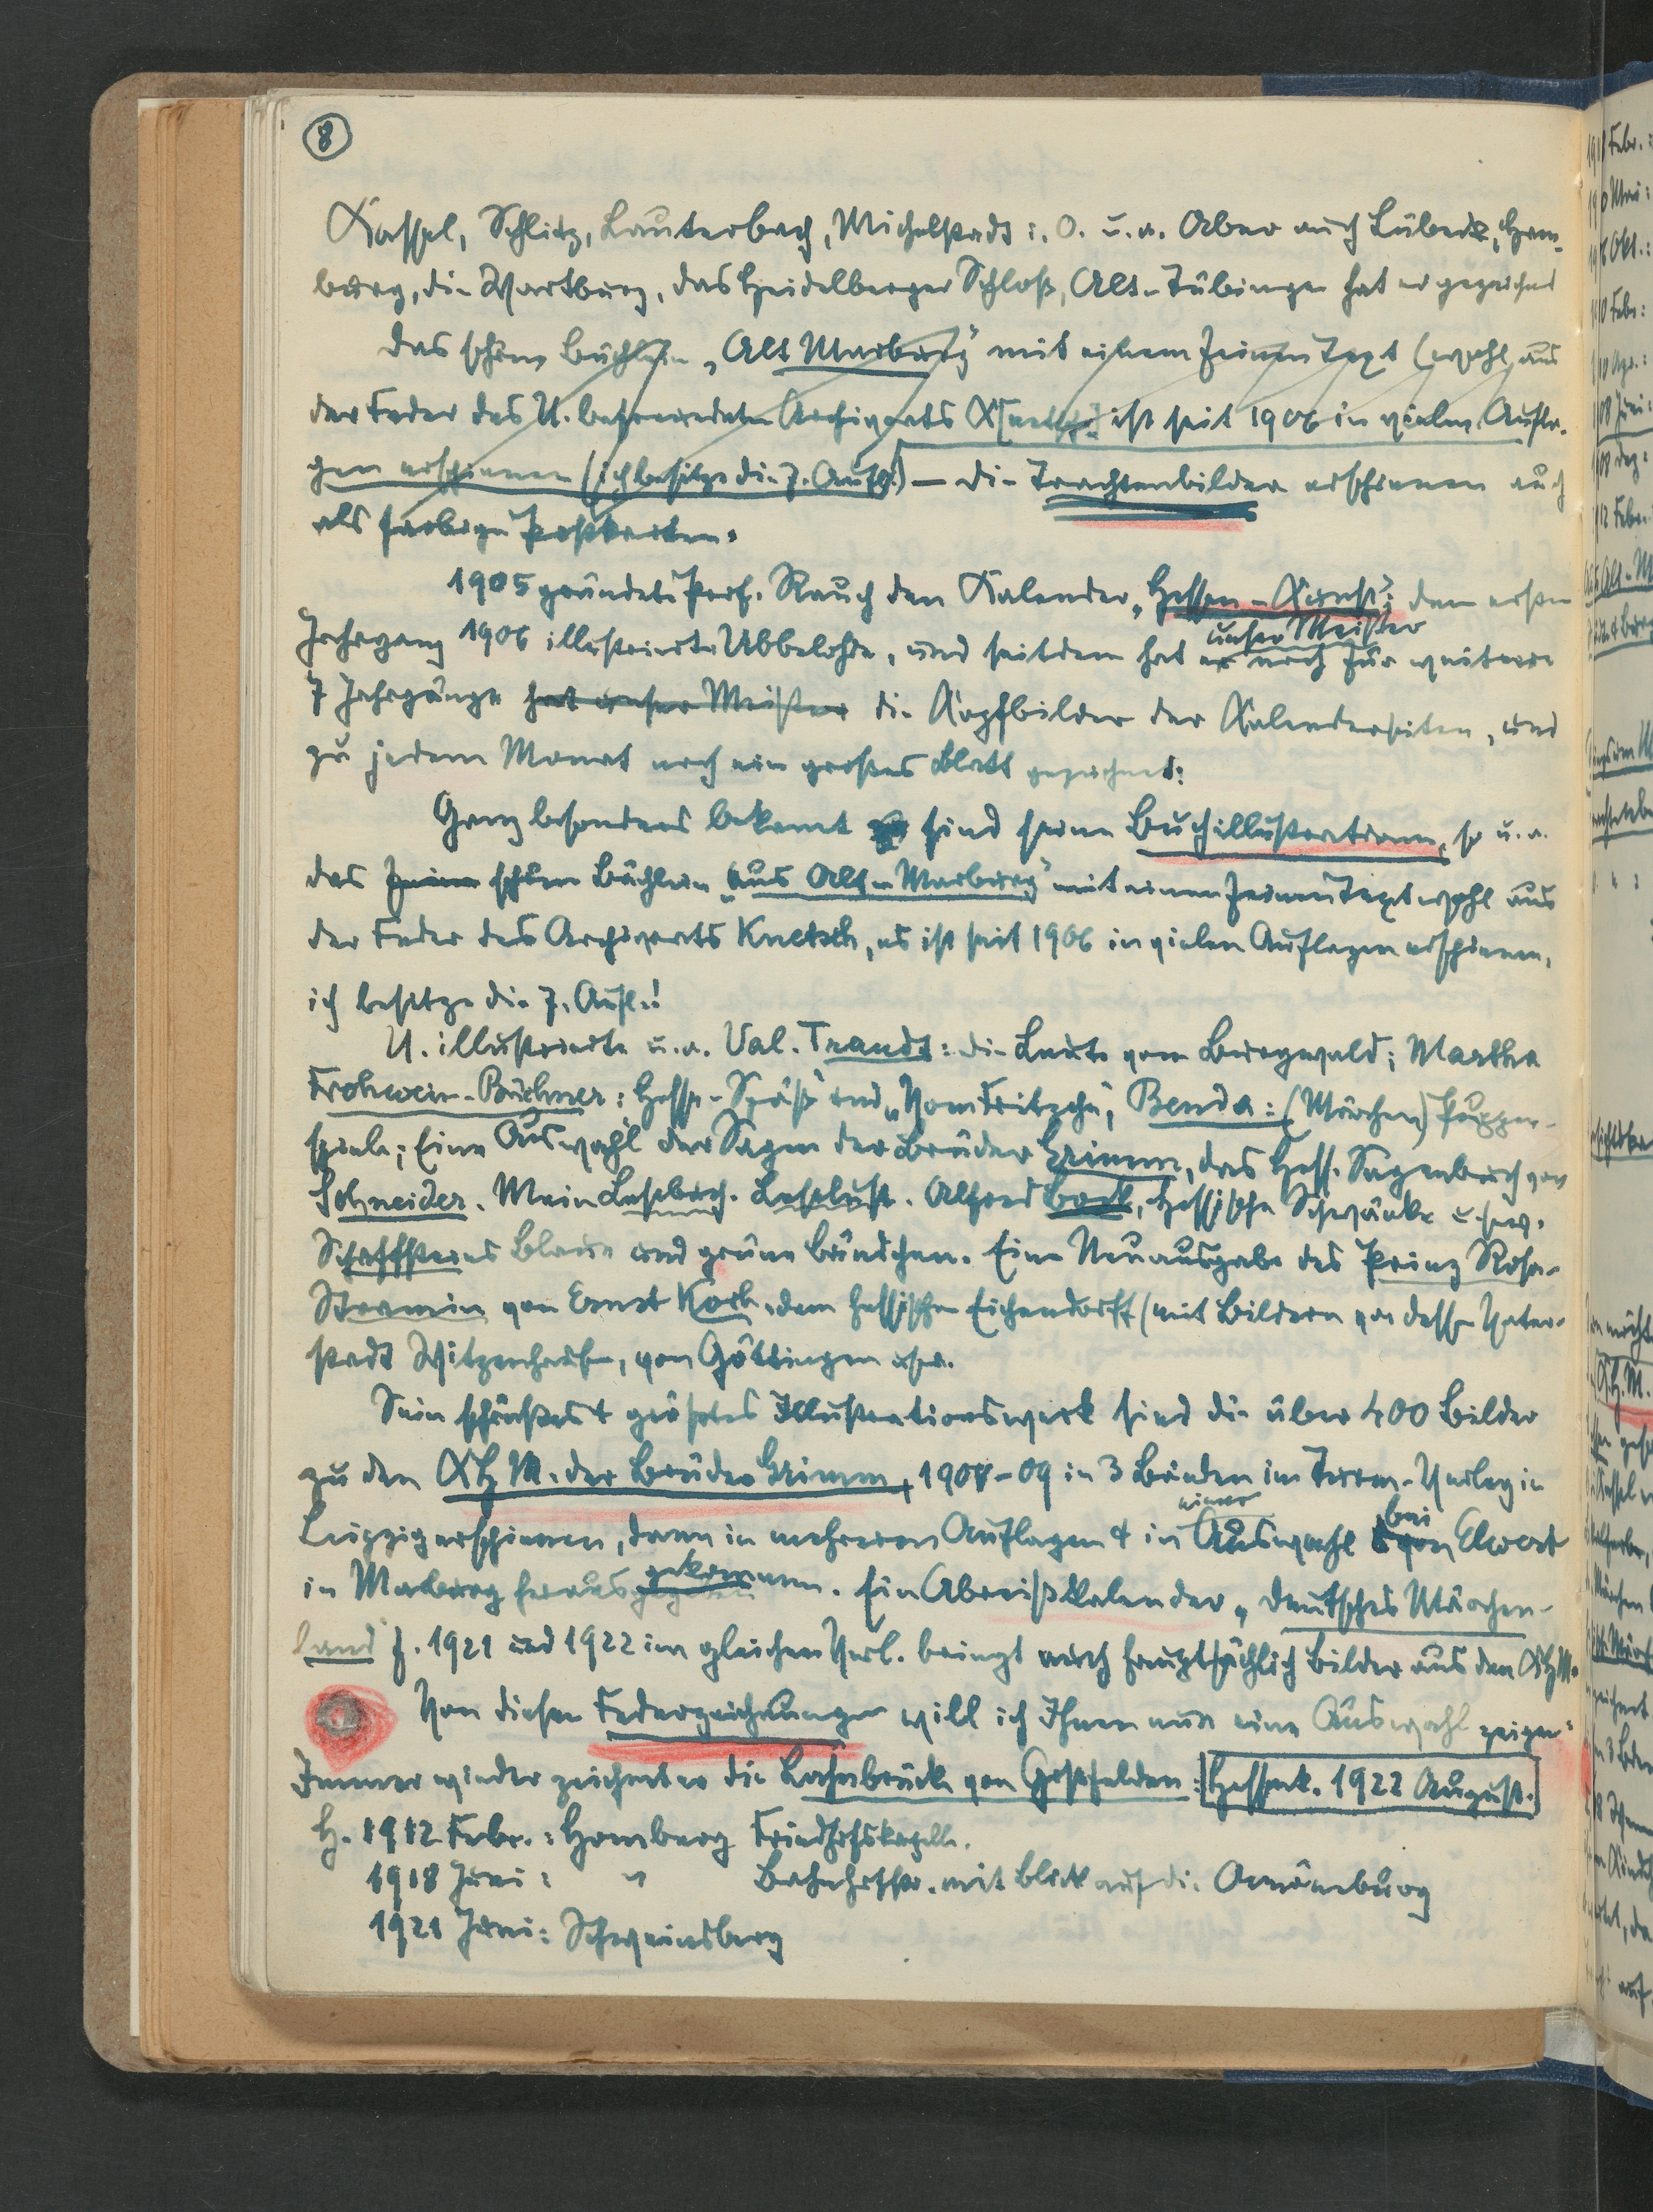 8
Kassel, Schlitz, Lauterbach, Michelstadt i. O. u. a. Aber auch Lübeck, Ham-
burg, die Wartburg, das Heidelberger Schloß, Alt-Tübingen hat er gezeichnet
Das schöne Büchlein „Alt Marburg" mit einem feinen Text (wohl aus
der Feder des U. befreundeten Archivrats Knetsch) ist seit 1906 in vielen Aufla-
gen erschienen (ich besitze die 7. Aufl.) — Die Trachtenbilder erschienen auch
als farbige Postkarten.
1905 gründete Prof. Rauch den Kalender „Hessen-Kunst"; den ersten
unser Meister
Jahrgang 1906 illustrierte Ubbelohde, und seitdem hat er noch für weitere
7 Jahrgänge hat unser Meister die Kopfbilder der Kalenderseiten, und
zu jedem Monat noch ein großes Blatt gezeichnet:
Ganz besonders bekannt sind seine Buchillustrationen, so u. a.
das feine schöne Büchlein „Aus Alt-Marburg" mit einem feinen Text wohl aus
der Feder des Archivrats Knetsch, es ist seit 1906 in vielen Auflagen erschienen,
ich besitze die 7. Aufl.!
U. illustrierte u. a. Val. Traudt: die Leute vom Burgwald; Martha
Frohwein-Büchner: Hesse-Späß und „Vom Fritzche", Benda: (Märchen) Puppen-
spiele; Eine Auswahl der Sagen der Brüder Grimm, das Hess. Sagenbuch von
Schneider. Mein Lesebuch. Leselust. Alfred Bock, Hessische Schwänke usw.
Schaffsteins Blaue und grüne Bändchen. Eine Neuausgabe des Prinz Rosa-
Stramin von Ernst Koch, dem hessischen Eichendorff (mit Bildern von dessen Vater-
stadt Witzenhausen, von Göttingen usw.
Sein schönstes + größtes Illustrationswerk sind die über 400 Bilder
zu den K H M. der Brüder Grimm, 1907-09 in 3 Bänden im Turm-Verlag in
einer bei
Leipzig erschienen, dann in mehreren Auflagen + in Auswahl von Elwert
in Marburg herausgekommen. Ein Abreißkalender „Deutsches Märchen-
land" f. 1921 und 1922 im gleichen Verl. bringt auch hauptsächlich Bilder aus den KHM.
Von diesen Federzeichnungen will ich Ihnen nun eine Auswahl zeigen:
Immer wieder zeichnet er die Lahnbrücke von Goßfelden: Hessenk. 1922 August.
H. 1912 Febr.: Homberg Friedhofskapelle.
1918 Juni: " Bahnhofstr. mit Blick auf die Amöneburg
1921 Juni: Schweinsberg